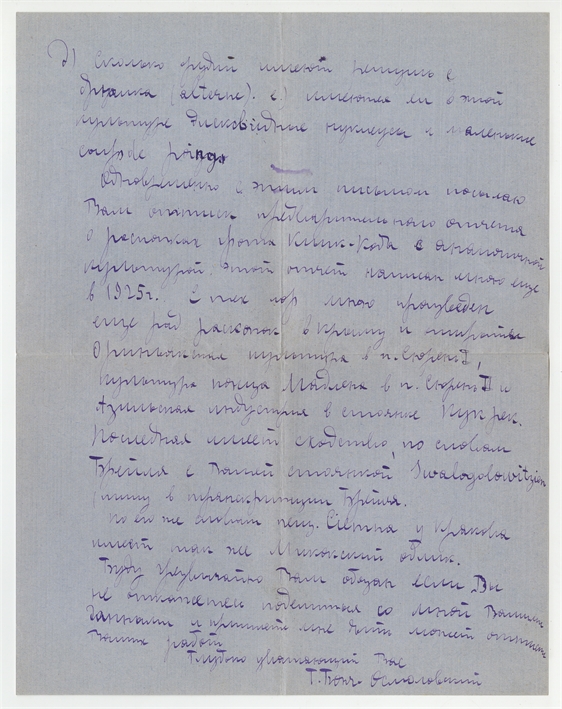 д) сколько орудий имеют ретушь с
брюшка (alterne). е) имеются ли в этой
культуре дисковидные нуклеусы и маленькие
coups de poings
Одновременно с этим письмом посылаю
Вам оттиск предварительного отчета
о раскопках грота Киик-Коба с аналогичной
культурой. Этот отчет написан мною еще
в 1925 г. С тех пор мною произведен
еще ряд раскопок в Крыму и
Ориньякская культура в п. Сюрень I,
культура конца Мадлена в п. Сюрень II и
Азильская индустрия в стоянке Кукрек.
Последняя имеет сходство, по словам
Брейля с Вашей стоянкой Swalogolowitzien
/пишу в транскрипции Брейля.
По его же словам пещ. у Кракова
имеет так же Микокский облик.
Буду чрезвычайно Вам обязан если Вы
не откажетесь поделиться со мной Вашими
данными и пришлете мне быть может оттиски
Ваших работ
Глубоко уважающий Вас
Г. Бонч-Осмоловский